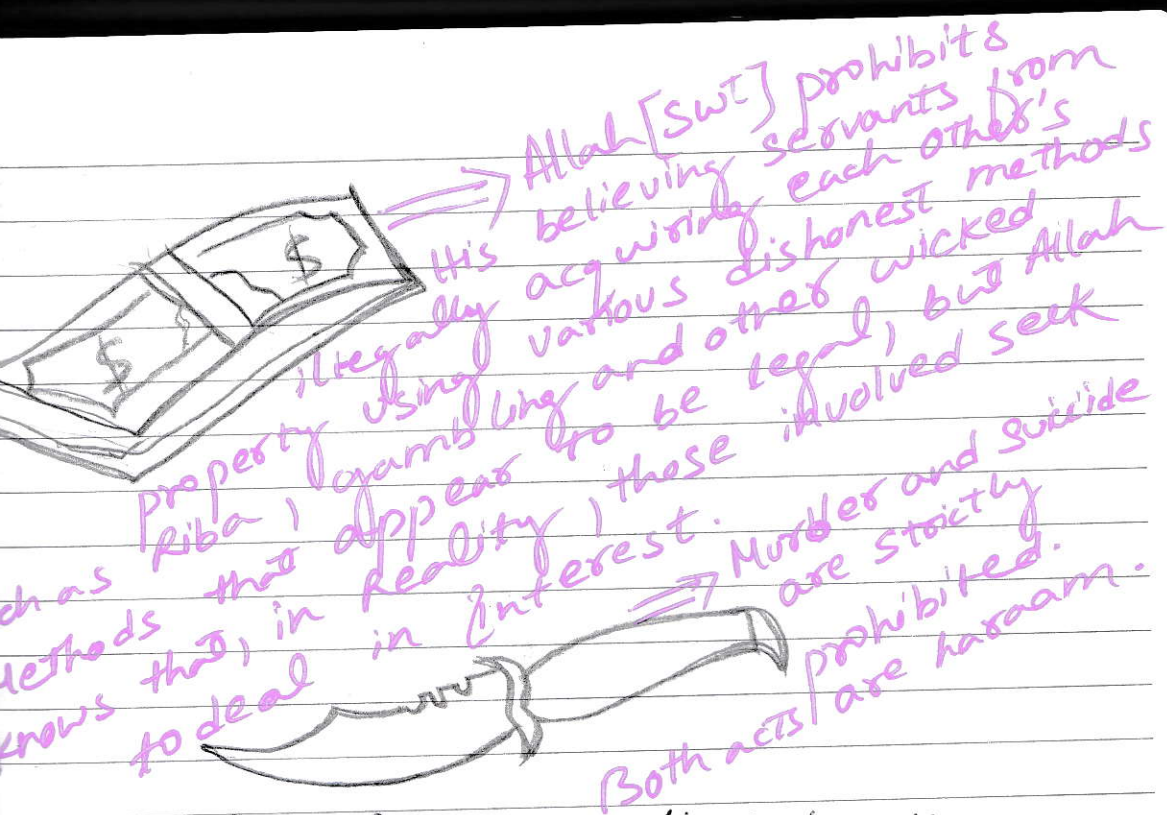 Allah [SWT] prohibits
His believing servants from
illegally acquiring each other's
property using various dishonest methods
ch as Riba, gambling and other wicked
Methods that appear to be legal, but Allah
knows that, in Reality, those involved seek
to deal in Interest.
$
$
Murder and suicide
are strictly
prohibited.
Both acts are haraam.